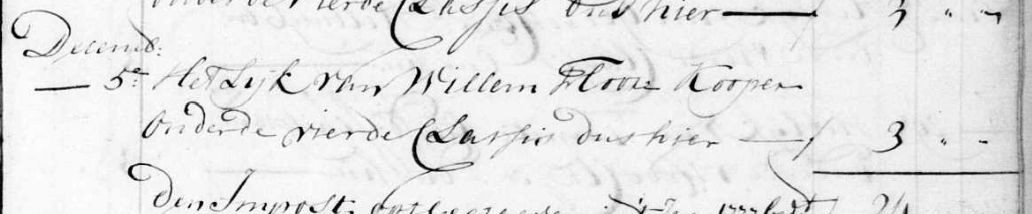 onder de vierde Classis dus hier — 3 " "
Decemb:
— 5e Het Lyk van Willem Kooper
onder de vierde Classis dus hier — 3 " "
Den Impost 1777